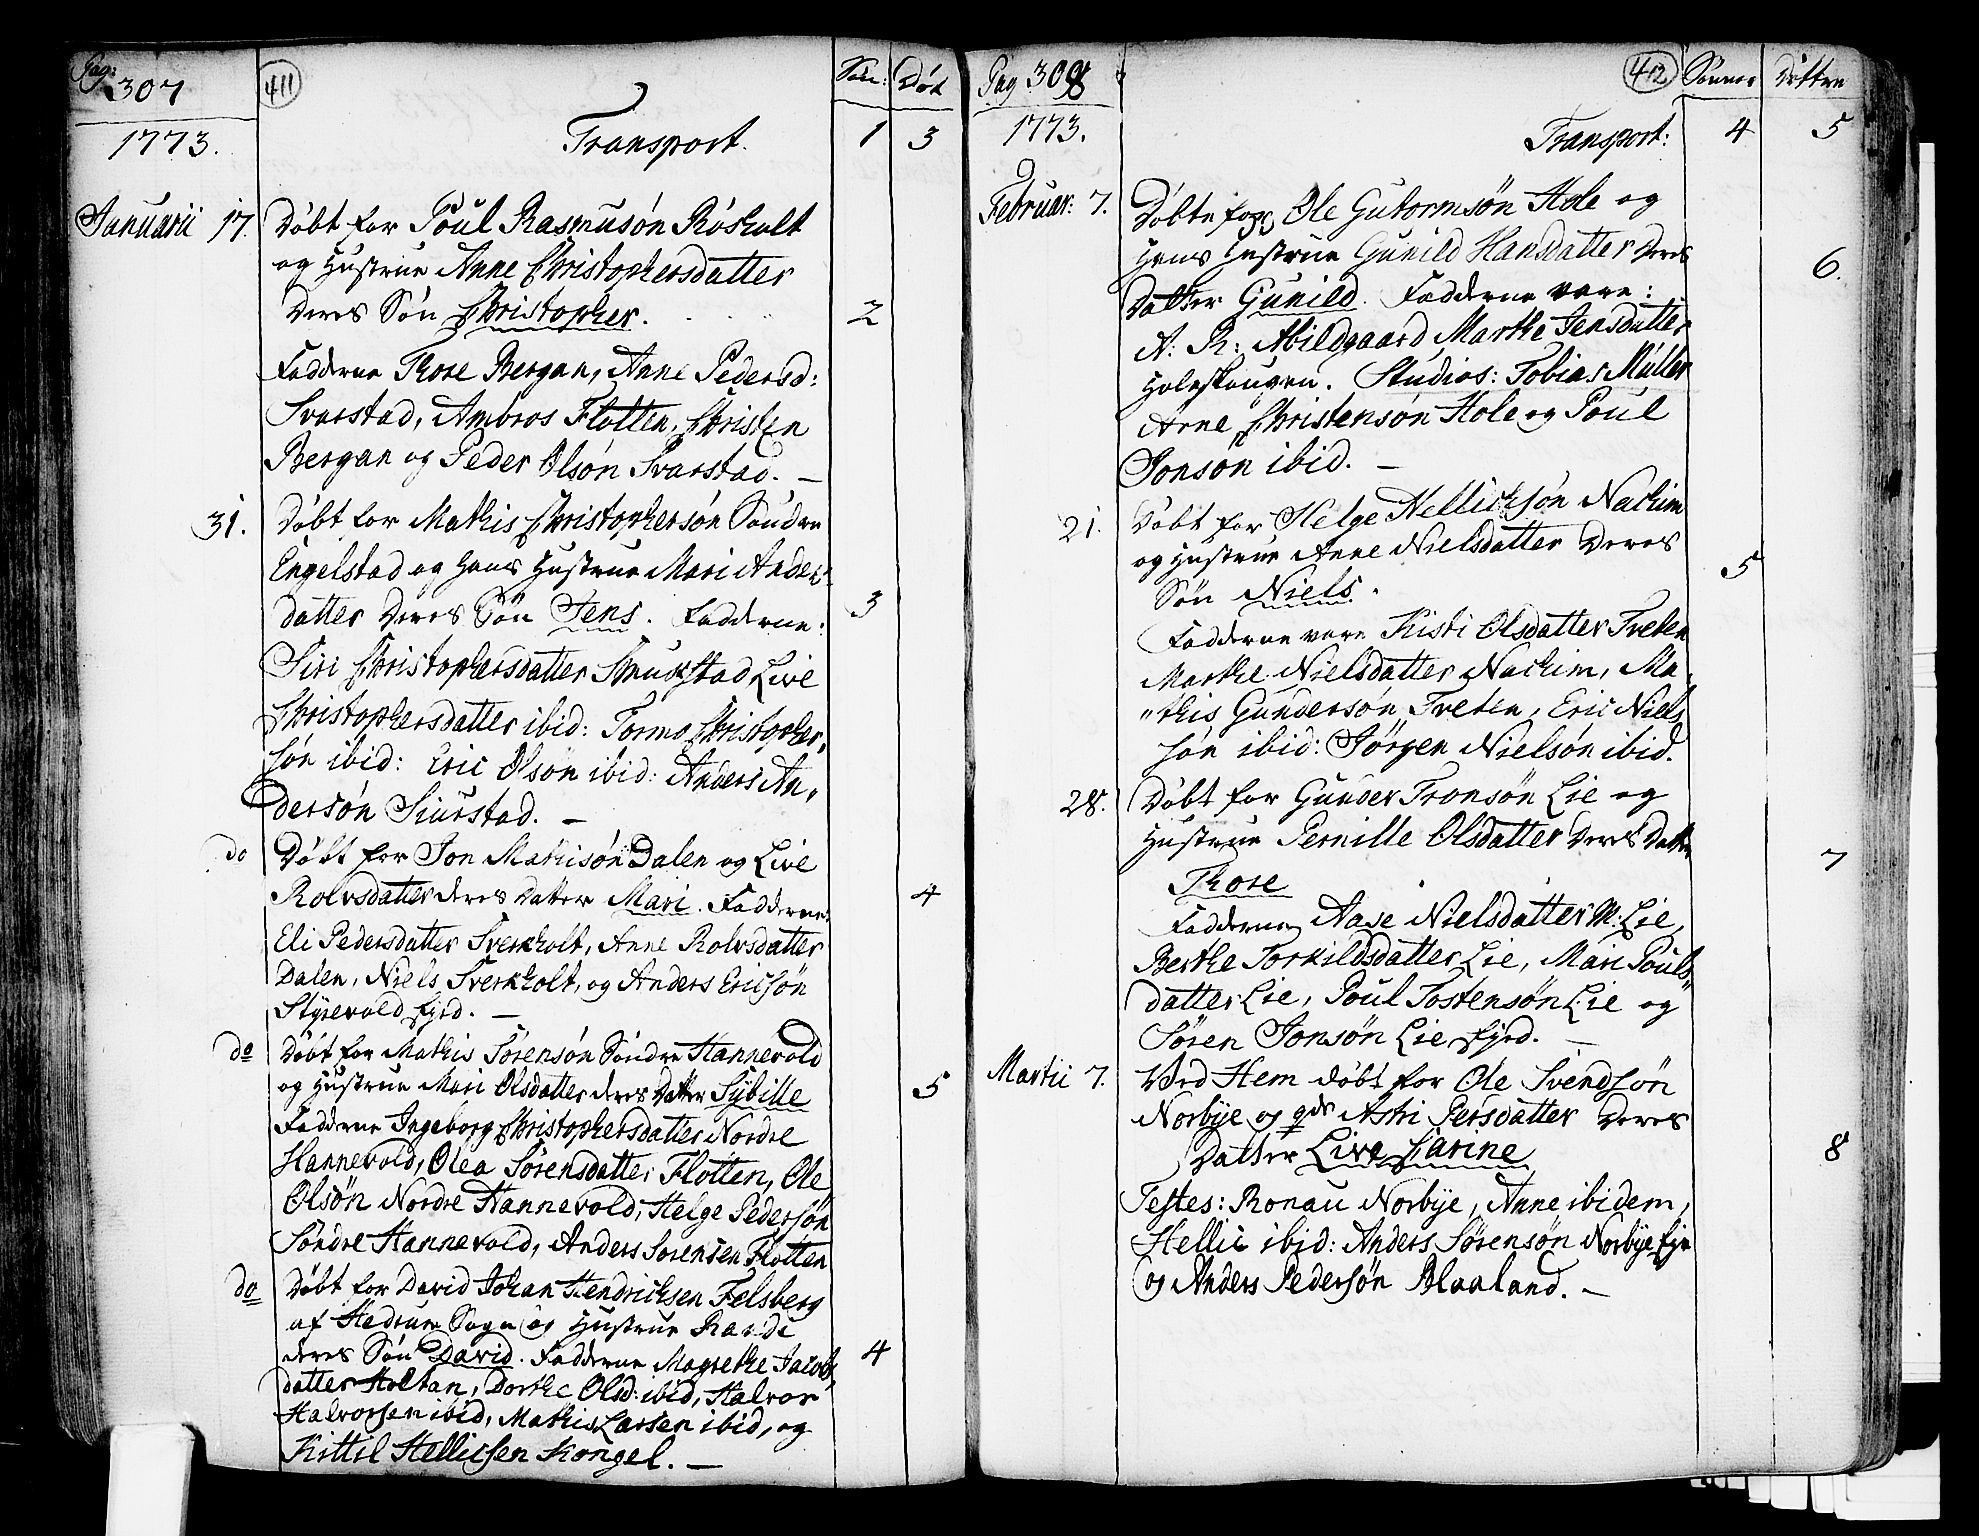 Pag: 307
411
Søn: Døt
1773.
Transport. 1 3
Januarii 17. Døbt for Poul Rasmusøn Röskolt
og Hustrue Anne Christophersdatter
Deres Søn Christopher. 2
Fadderne Thore Bergan, Anne Pedersd:
Svarstad, Ambros Flotten, Christen
Bergan og Peder Olsøn Svarstad. —
31. Døbt for Mathis Christophersøn Søndre
Engelstad og Hans Hustrue Mari Anders-
datter Deres Søn Jens. Fadderne: 3
Siri Christophersdatter Skuckstad, Live
Christophersdatter ibid: Tormo Christopher-
søn ibid: Eric Olsøn ibid: Anders An-
dersøn Siurstad. —
do Døbt for Jon Mathisøn Dalen og Live
Rolvsdatter deres Datter Mari. Fadderne: 4
Eli Pedersdatter Sverkholt, Anne Rolvsdatter
Dalen, Niels Sverkholt, og Anders Ericsøn
Styrevold fyrd. —
do Døbt for Mathis Sørensøn Søndre Hannevold
og Hustrue Mari Olsdatter deres Datter Sybille 5
Fadderne Ingeborg Christophersdatter Nordre
Hannevold, Olea Sørensdatter Flotten, Ole
Olsøn Nordre Hannevold, Helge Pedersøn
Søndre Hannevold, Anders Sorensen Flotten
do Døbt for David Johan Hendrichsen Felsberg
af Hedrum Sogn og Hustrue Randi
deres Søn David. Fadderne Magrethe Jacobs- 4
datter Holtan, Dorthe Olsd: ibid, Halvor
Halvorsen ibid, Mathis Larsen ibid, og
Kittil Hellicsen Kongel. —
Pag 308
412
Sønner Døttre
1773.
Transport: 4 5
Februar: 7. Døbte for Ole Gutormsøn Hole og
Hans Hustrue Gunild Hansdatter Deres
Datter Gunild. Fadderne vare: 6.
A: R: Abildgaard Marthe Jensdatter
Holeskougen. Studios: Tobias Müller
Arne Christensøn Hole og Poul
Jonsøn ibid. —
21. Døbt for Helge Hellichsøn Nachim
og Hustrue Anne Nielsdatter Deres
Søn Niels. 5
Fadderne vare Kisti Olsdatter Tveten
Marthe Nielsdatter Nachim, Ma-
"this Gundersøn Tveten, Eric Niels
søn ibid: Jörgen Nielsøn ibid.
28. Døbt for Gunder Tronsøn Lie og
Hustrue Pernille Olsdatter Deres Datter
Thore 7
Fadderne Aase Nielsdatter M: Lie,
Berthe Torkildsdatter Lie, Mari Pouls"
datter Lie, Poul Tostensøn Lie og
Søren Jonsøn Lie fyrd. —
Martii 7. Ved Hem døbt for Ole Svendsøn
Norbye og qdr Astri Persdatter Deres
Datter Live Carine 8
Testes: Ronau Norbye, Anne ibidem,
Hellic ibid: Anders Sørensøn Norbye fyr
og Anders Pedersøn Blaaland. —